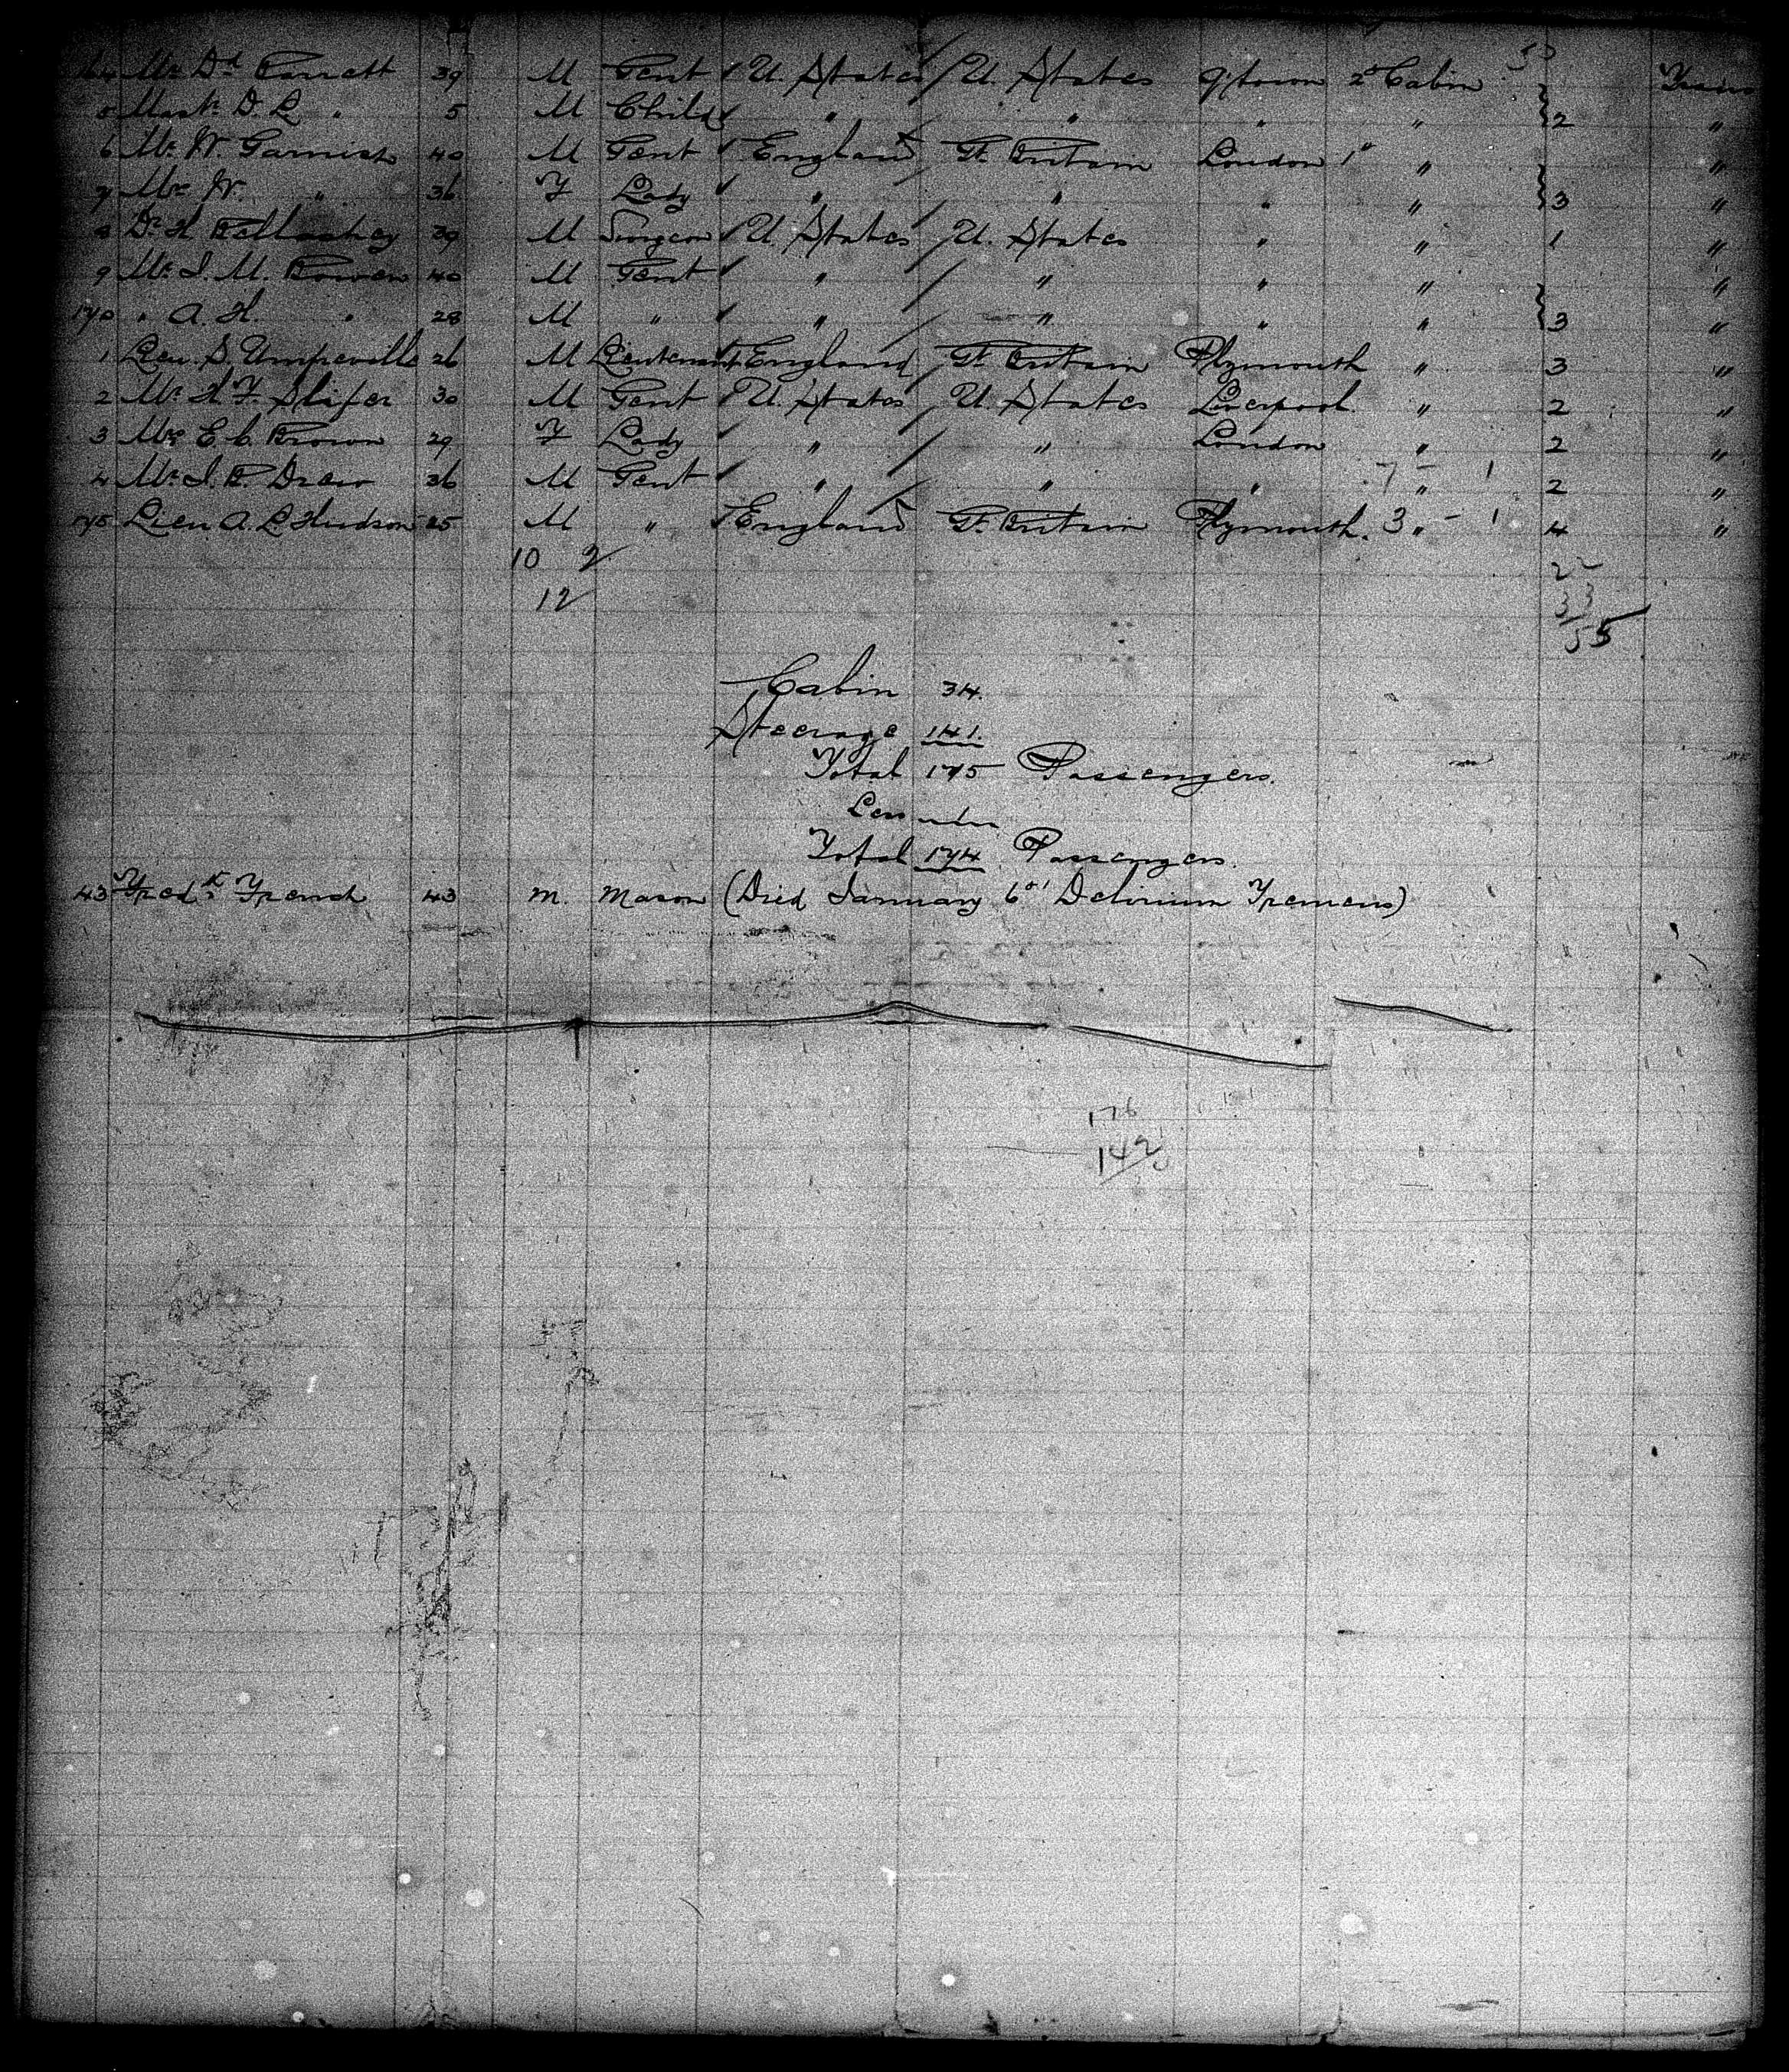 64 Mr. Dd. Barrett 39 M Gent U. States U. States Q'town 2d Cabin
5 Mastr. D. L " 5 M Child " " " " 2 "
6 Mr. W. Garnish 40 M Gent England Gt. Britain London 1st " "
7 Mrs. W. " 36 F Lady " " " " 3 "
8 Dr. H 39 M Surgeon U. States U. States " " 1 "
9 Mr. I. M. Bowen 40 M Gent " " " " "
170 " A. H. " 28 M " " " " " 3 "
1 Lieu. S. Umfreville 26 M Lieutenant England Gt. Britain Plymouth " 3 "
2 Mr. H. F. Slifer 30 M Gent U. States U. States Liverpool " 2 "
3 Mrs. E. C. Brown 29 F Lady " " London " 2 "
4 Mr. I. B. Drew 36 M Gent " " " 7 " - 1 2 "
175 Lieu A. L Hudson 25 M " England Gt. Britain Plymouth. 3 " - 1 4 "
10 2 22
12 33
55
Cabin 34.
Steerage 141.
Total 175 Passengers.
Less
Total 174 Passengers.
43 Fredk. French 43 M. Mason (Died January 6th Delirium Tremens)
176
142